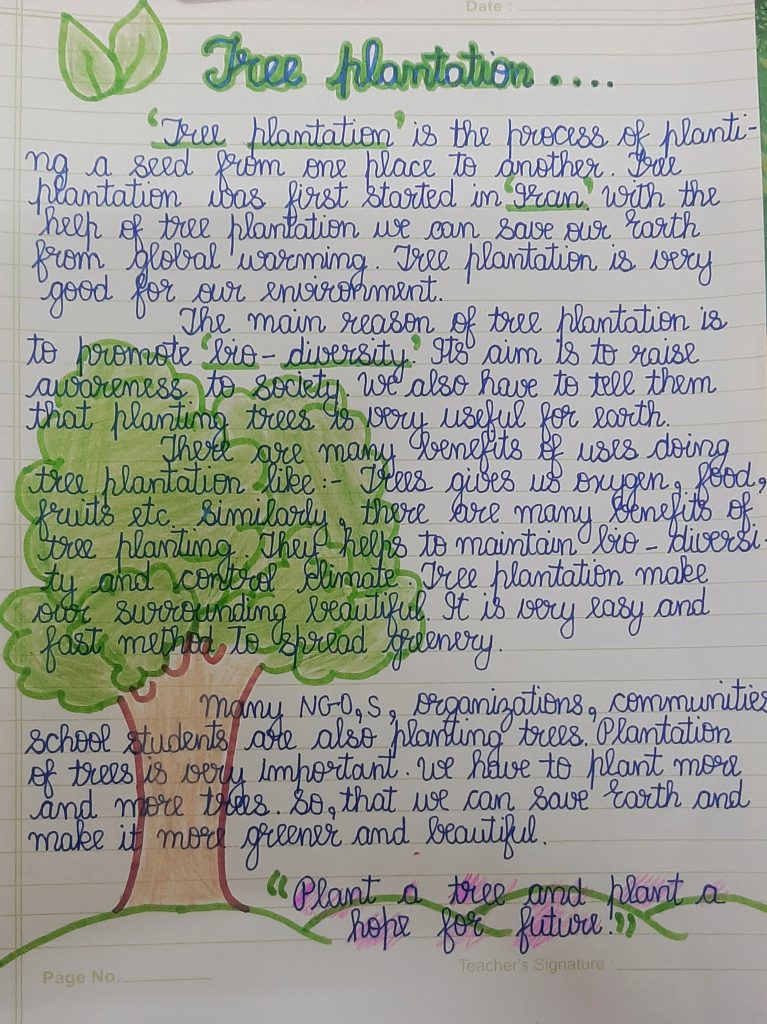 Date :
Tree plantation ....
'Tree plantation' is the process of planti-
ng a seed from one place to another. Tree
plantation was first started in 'Iran.' With the
help of tree plantation we can save our Earth
from global warming. Tree plantation is very
good for our environment.
The main reason of tree plantation is
to promote 'bio-diversity.' Its aim is to raise
awareness to society. We also have to tell them
that planting trees is very useful for earth.
There are many benefits of uses doing
tree plantation like :- Trees gives us oxygen, food,
fruits etc. similarly, there are many benefits of
tree planting. They helps to maintain bio-diversi-
ty and control climate. Tree plantation make
our surrounding beautiful. It is very easy and
fast method to spread greenery.
Many NGO,S, organizations, communities
school students are also planting trees. Plantation
of trees is very important. We have to plant more
and more trees. So, that we can save Earth and
make it more greener and beautiful.
"Plant a tree and plant a
hope for future!"
Page No.
Teacher's Signature :